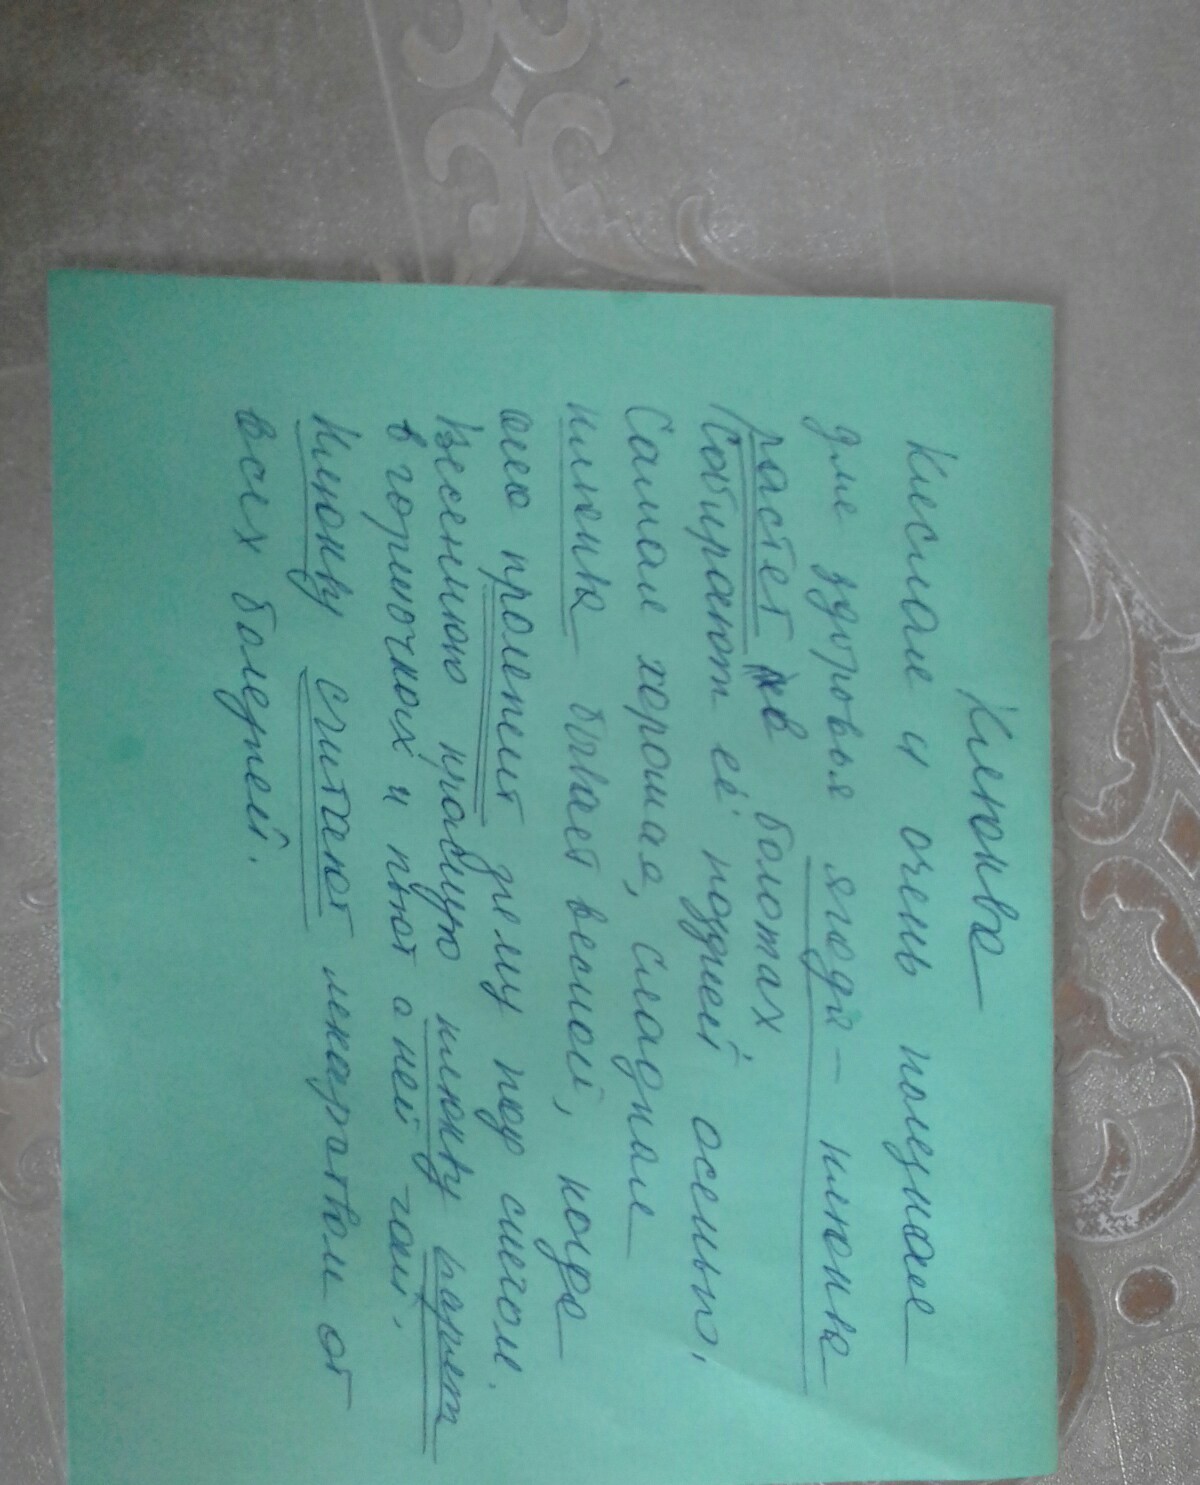 Клюква
Кислая и очень полезная
для здоровья ягода - клюква
растёт в болотах
Собирают её поздней осенью,
Самая хорошая, сладкая
клюква бывает весной, когда
она пролежит зиму под снегом.
Весеннюю красную клюкву варят
в горшочках и пьют с ней чай,
Клюкву считают лекарством от
всех болезней.